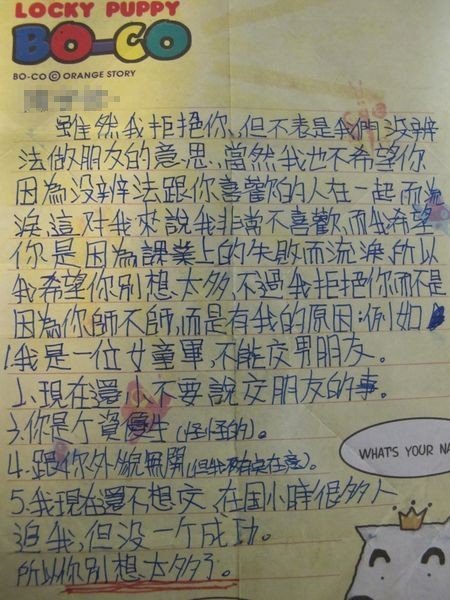 LOCKY PUPPY
BO-CO
BO-CO © ORANGE STORY
雖然我拒絕你,但不表是我們沒辨
法做朋友的意思,當然我也不希望你
因為沒辨法跟你喜歡的人在一起而流
淚,這对我來說我非常不喜歡,而我希望
你是因為課業上的失敗而流淚,所以
我希望你別想太多,不過我拒絕你而不是
因為你師不師,而是有我的原因:例如
1.我是一位女童軍,不能交男朋友。
2.現在還小不要說交朋友的事。
3.你是个資優生(怪怪的)。
4.跟你外貌無關(但我有在意)。
5.我現在還不想交,在国小時很多人
追我,但没一个成功。
所以你別想太多了。
WHAT'S YOUR NA